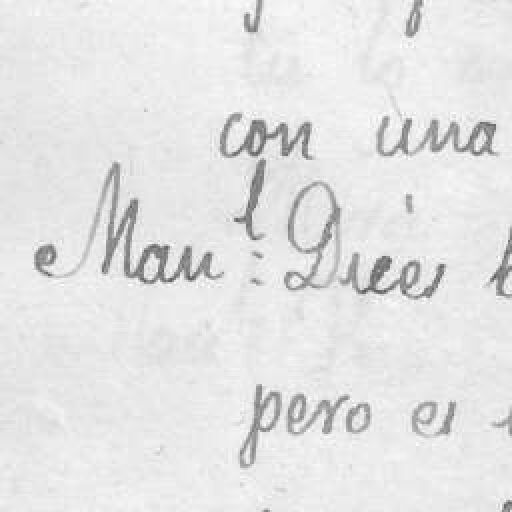 con una
Man.l: Dices
pero es